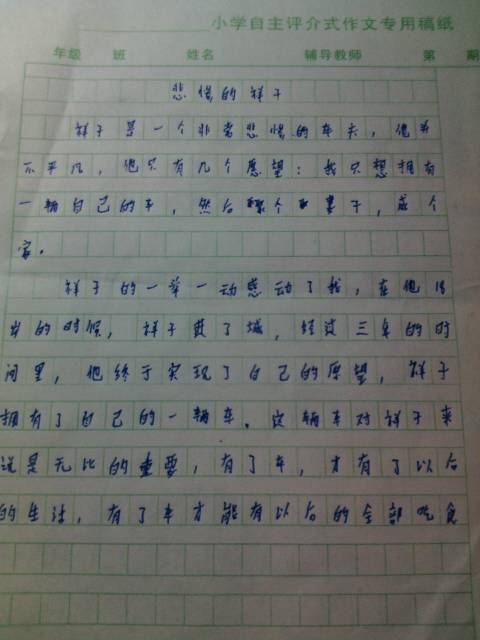 小学自主评介式作文专用稿纸
年级 班 姓名 辅导教师 第 期
悲惨的祥子
祥子是一个非常悲惨的车夫，他并
不平凡，他只有几个愿望：我只想拥有
一辆自己的车，然后个妻子，成个
家。
祥子的一举一动感动了我，在他
岁的时候，祥子费了城，经过三年的时
间里，他终于实现了自己的原望，祥子
拥有了自己的一辆车。这辆车对祥子来
说是无比的重要，有了车，才有了以后
的生活，有了车才能有以后的全部吃食